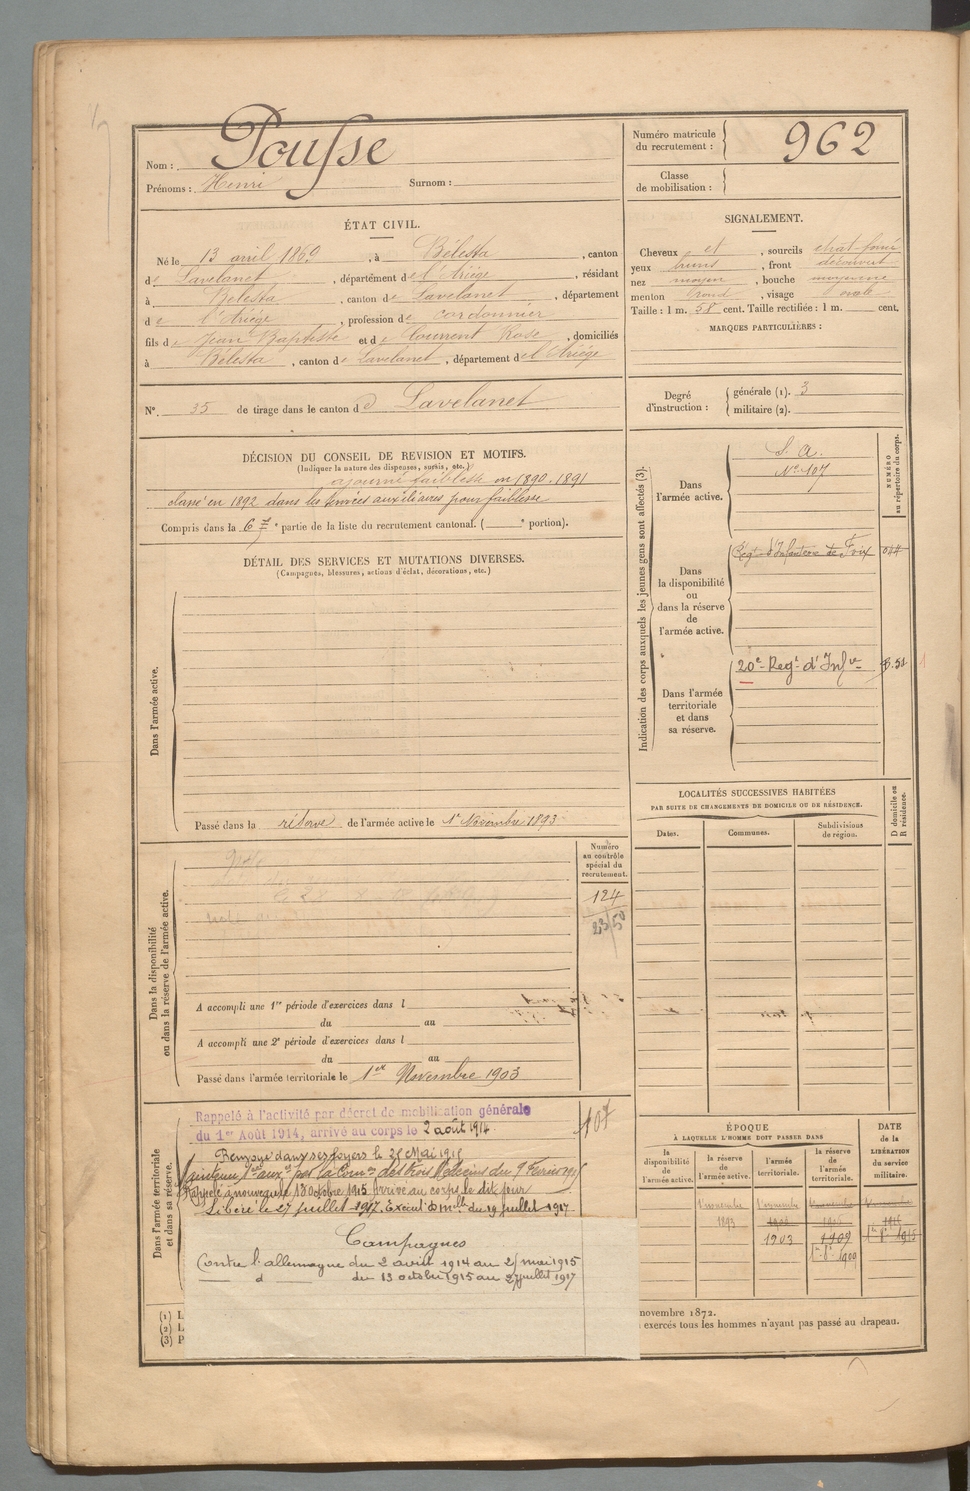 Nom : Pousse
Prénoms : Henri Surnom :
Numéro matricule du recrutement : 962
Classe de mobilisation :
ÉTAT CIVIL.
Né le 13 avril 1869, à Bélesta, canton
de Lavelanet, département de l'Ariége, résidant
à Bélesta, canton de Lavelanet, département
de l'Ariége, profession de cordonnier
fils de Jean Baptiste et de Courrent Rose, domiciliés
à Bélesta, canton de Lavelanet, département de l'Ariége
SIGNALEMENT.
Cheveux et, sourcils chat-foncé
yeux bruns, front découvert
nez moyen, bouche moyenne
menton rond, visage ovale
Taille : 1 m. 58 cent. Taille rectifiée : 1 m. cent.
MARQUES PARTICULIÈRES :
N° 35 de tirage dans le canton d Lavelanet
Degré d'instruction : générale (1). 3
militaire (2).
DÉCISION DU CONSEIL DE REVISION ET MOTIFS.
(Indiquer la nature des dispenses, sursis, etc.)
ajourné faiblesse en 1890. 1891
classé en 1892 dans les services auxiliaires pour faiblesse
Compris dans la 6e partie de la liste du recrutement cantonal. ( e portion).
DÉTAIL DES SERVICES ET MUTATIONS DIVERSES.
(Campagnes, blessures, actions d'éclat, décorations, etc.)
Dans l'armée active.
Passé dans la réserve de l'armée active le 1er Novembre 1893
Indication des corps auxquels les jeunes gens sont affectés (3).
NUMÉRO au répertoire du corps.
Dans l'armée active.
S. A.
N° 107
Dans la disponibilité ou dans la réserve de l'armée active.
Régt d'Infanterie de Foix
Dans l'armée territoriale et dans sa réserve.
20e Regt d'Infie
LOCALITÉS SUCCESSIVES HABITÉES
PAR SUITE DE CHANGEMENTS DE DOMICILE OU DE RÉSIDENCE.
Dates. Communes. Subdivisions de région. D domicile ou R résidence.
Dans la disponibilité ou dans la réserve de l'armée active.
Numéro au contrôle spécial du recrutement.
124
23/50
A accompli une 1re période d'exercices dans l
du au
A accompli une 2e période d'exercices dans l
du au
Passé dans l'armée territoriale le 1er Novembre 1903
Dans l'armée territoriale et dans sa réserve.
Rappelé à l'activité par décret de mobilisation générale
du 1er Août 1914, arrivé au corps le 2 août 1914
107
Renvoyé dans ses foyers le 25 Mai 1915
Maintenu Sces aux. par la Comon des trois Médecins du 9 Février 1915
Rappelé à nouveau le 13 octobre 1915 Arrivé au corps le dit jour
Libéré le 27 juillet 1917. Exécut. D mlle du 19 juillet 1917
Campagnes
Contre l'allemagne du 2 août 1914 au 25 mai 1915
d du 13 octobre 1915 au 27 juillet 1917
ÉPOQUE
À LAQUELLE L'HOMME DOIT PASSER DANS
la disponibilité de l'armée active. la réserve de l'armée active. l'armée territoriale. la réserve de l'armée territoriale.
DATE de la LIBÉRATION du service militaire.
1893
1903 1909 1915
1er 8bre 1909
(1) L
(2) L
(3) P
novembre 1872.
exercés tous les hommes n'ayant pas passé au drapeau.